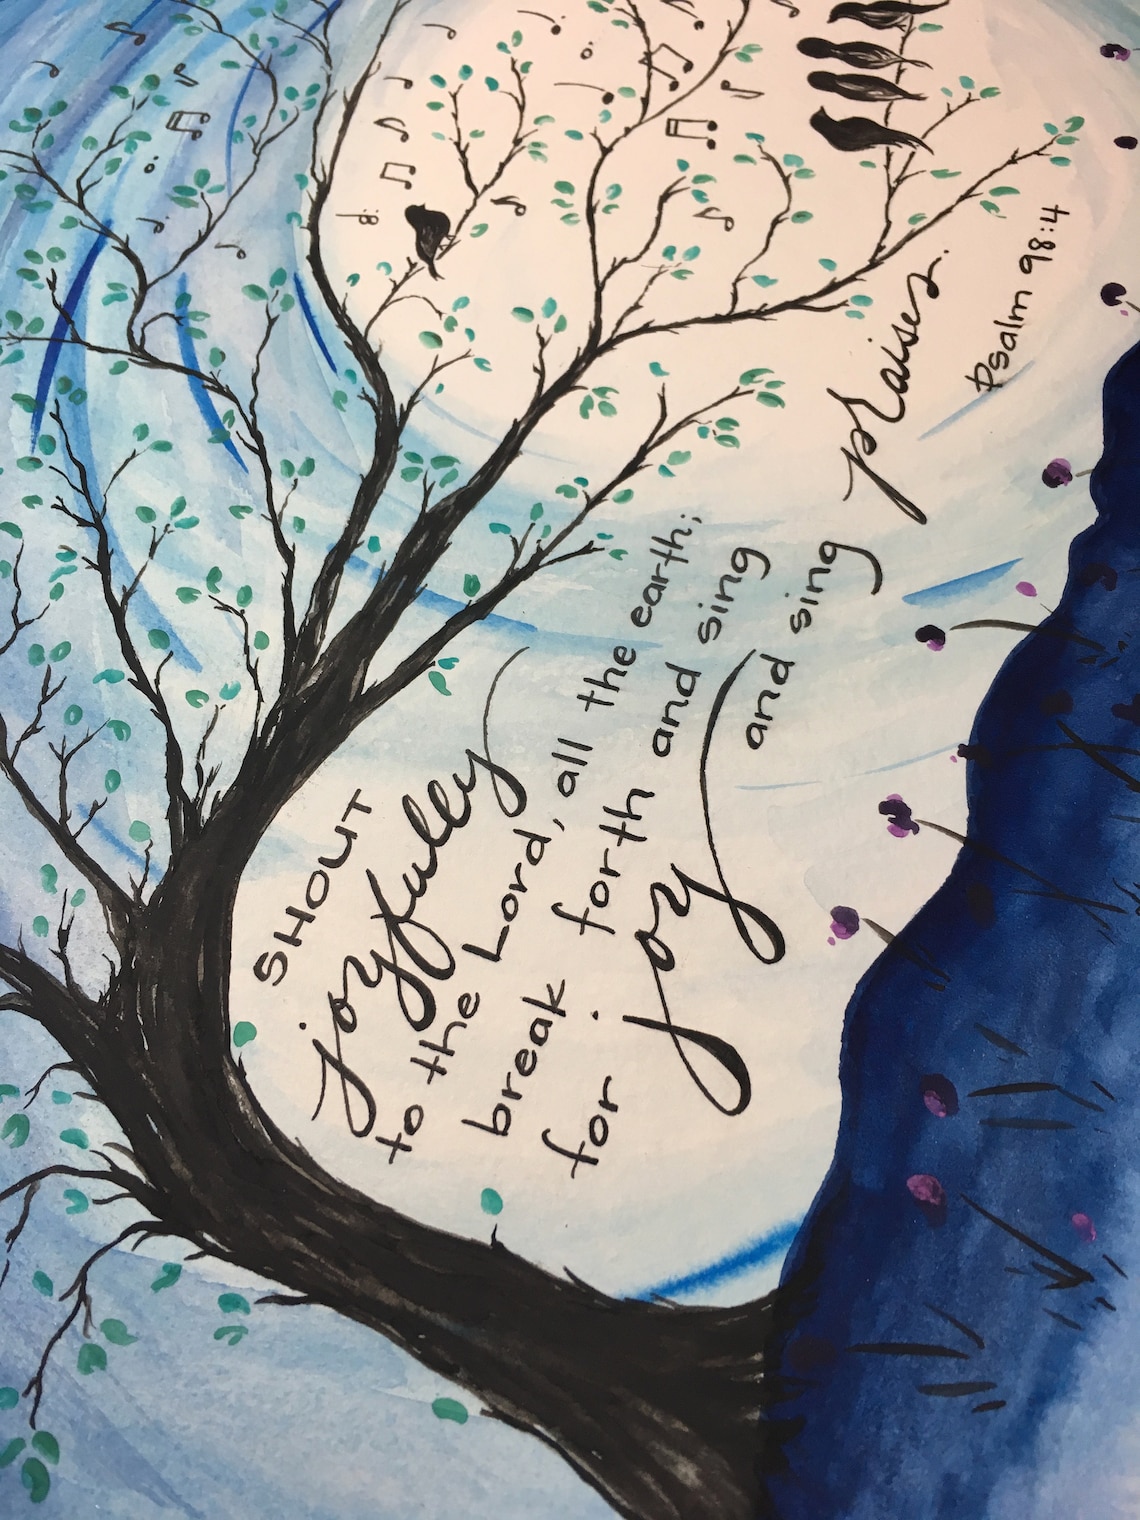 SHOUT
joyfully
to the Lord, all the earth;
break forth and sing
for joy and sing praises.
Psalm 98:4